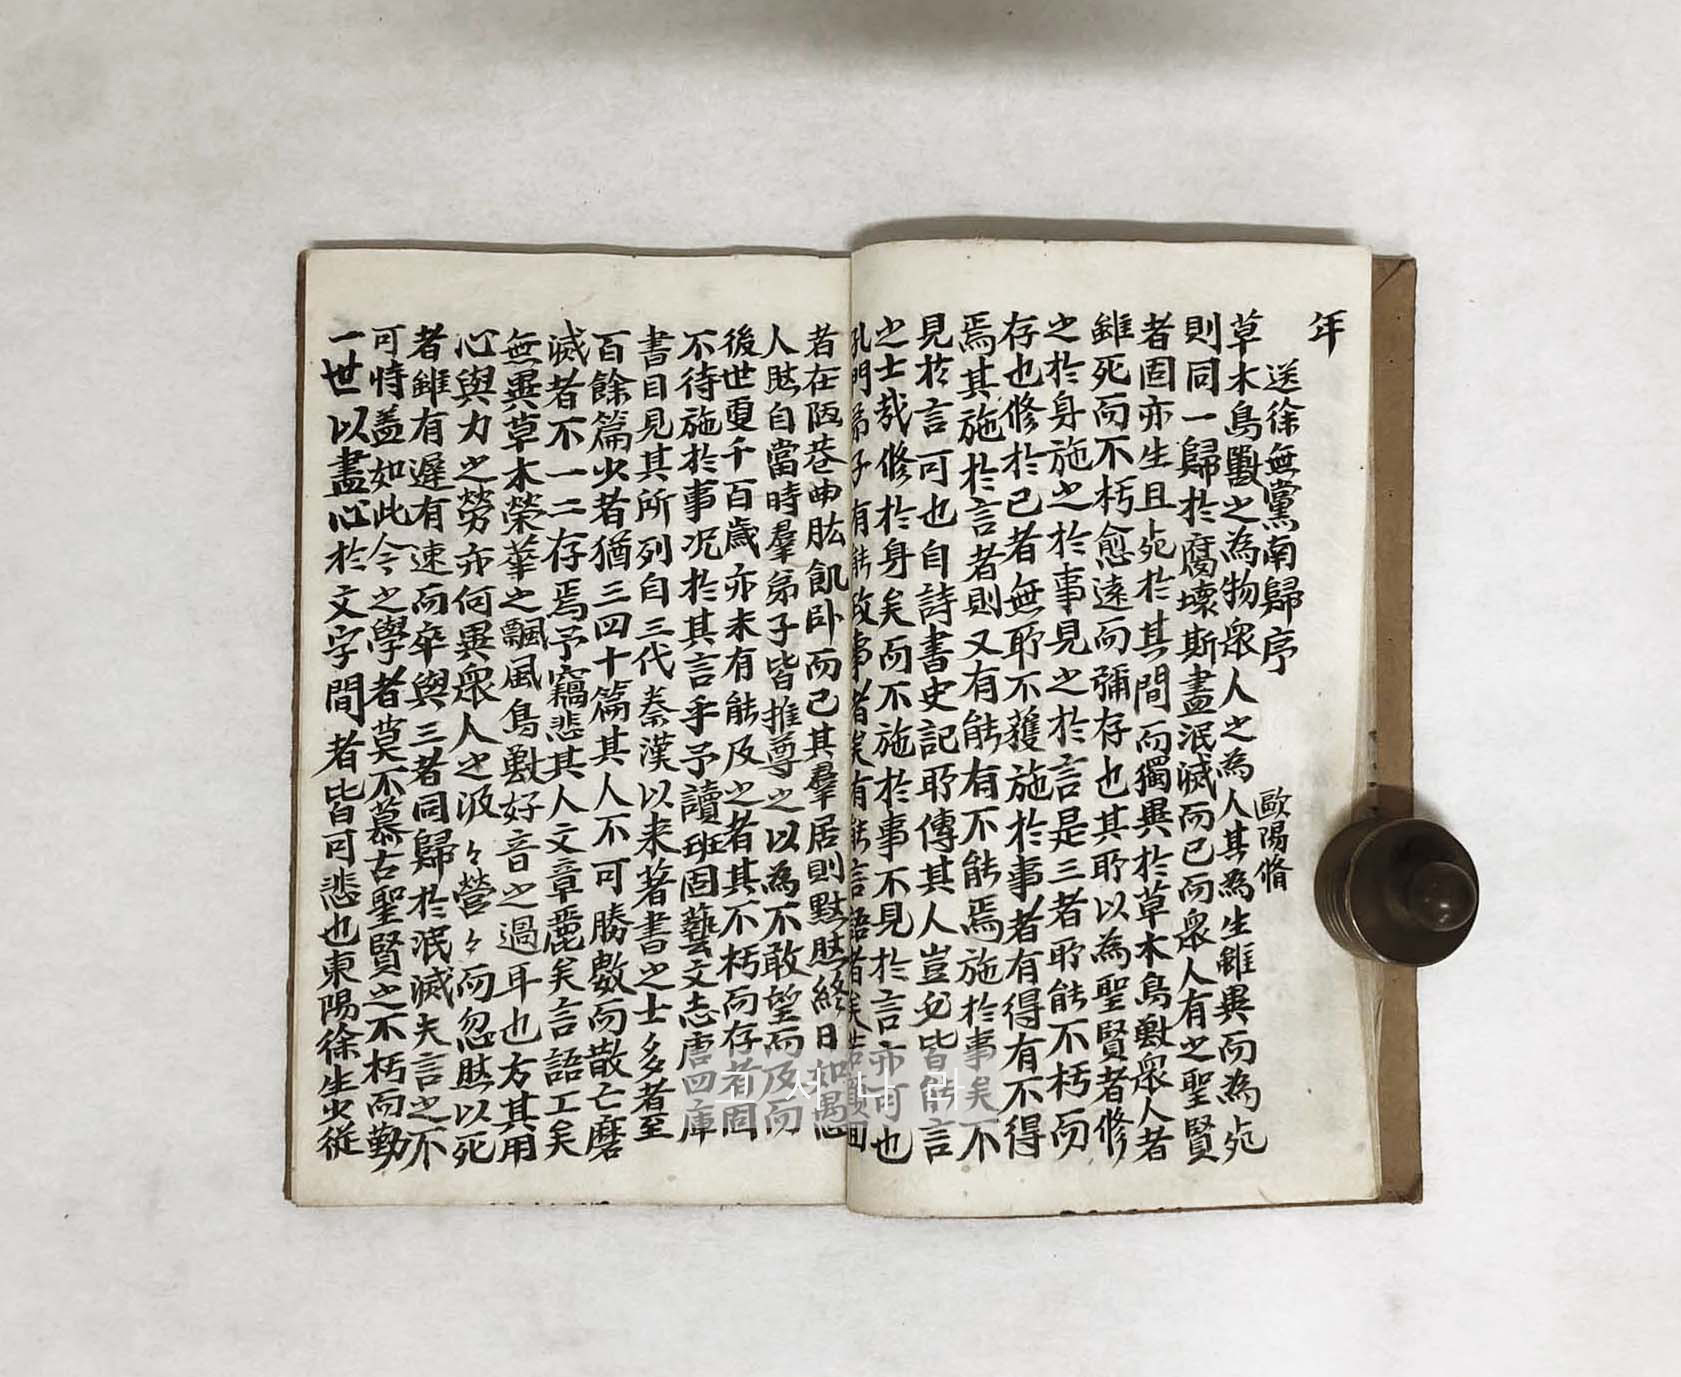 年
送徐無黨南歸序
歐陽脩
草木鳥獸之為物衆人之為人其為生雖異而為死
則同一歸於腐壞斯盡泯滅而已而衆人有之聖賢
者固亦生且死於其間而獨異於草木鳥獸衆人者
雖死而不朽愈遠而彌存也其所以為聖賢者修
之於身施之於事見之於言是三者所能不朽而
存也修於己者無所不獲施於事者有得有不得
焉其施於言者則又有能有不能焉施於事矣不
見於言可也自詩書史記所傳其人豈必皆能言
之士哉修於身矣而不施於事不見於言亦可也
孔門弟子有能政事者矣有能言語者矣若顏回
者在陋巷曲肱飢卧而已其羣居則默然終日如愚
人然自當時羣弟子皆推尊之以為不敢望而及而
後世更千百歲亦未有能及之者其不朽而存者固
不待施於事况於其言乎予讀班固藝文志唐四庫
書目見其所列自三代秦漢以来著書之士多者至
百餘篇少者猶三四十篇其人不可勝數而散亡磨
滅者不一二存焉予竊悲其人文章麗矣言語工矣
無異草木榮華之飄風鳥獸好音之過耳也方其用
心與力之勞亦何異衆人之汲々營々而忽然以死
者雖有遲有速而卒與三者同歸於泯滅夫言之不
可恃盖如此今之學者莫不慕古聖賢之不朽而勤
一世以盡心於文字間者皆可悲也東陽徐生少從
고서나라